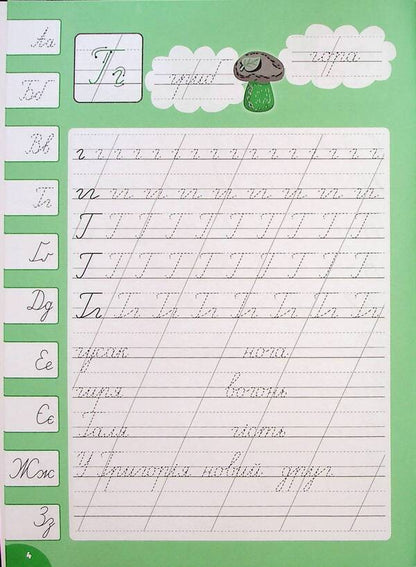 Аа
Бб
Вв
Гг
Ґґ
Дд
Ее
Єє
Жж
Зз
Гг
гриб
гора
г г г г г г г г г г г г г г г г г г
гг гг гг гг гг гг гг гг гг
Г Г Г Г Г Г Г Г Г Г
Г Г Г Г Г Г Г Г Г Г
Гг Гг Гг Гг Гг Гг Гг Гг
гусак нога
гиря вогонь
Галя гість
У Григорія новий друг
4